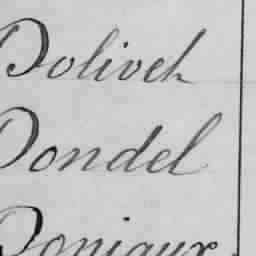 Dolivet
Dondel
Doniaux